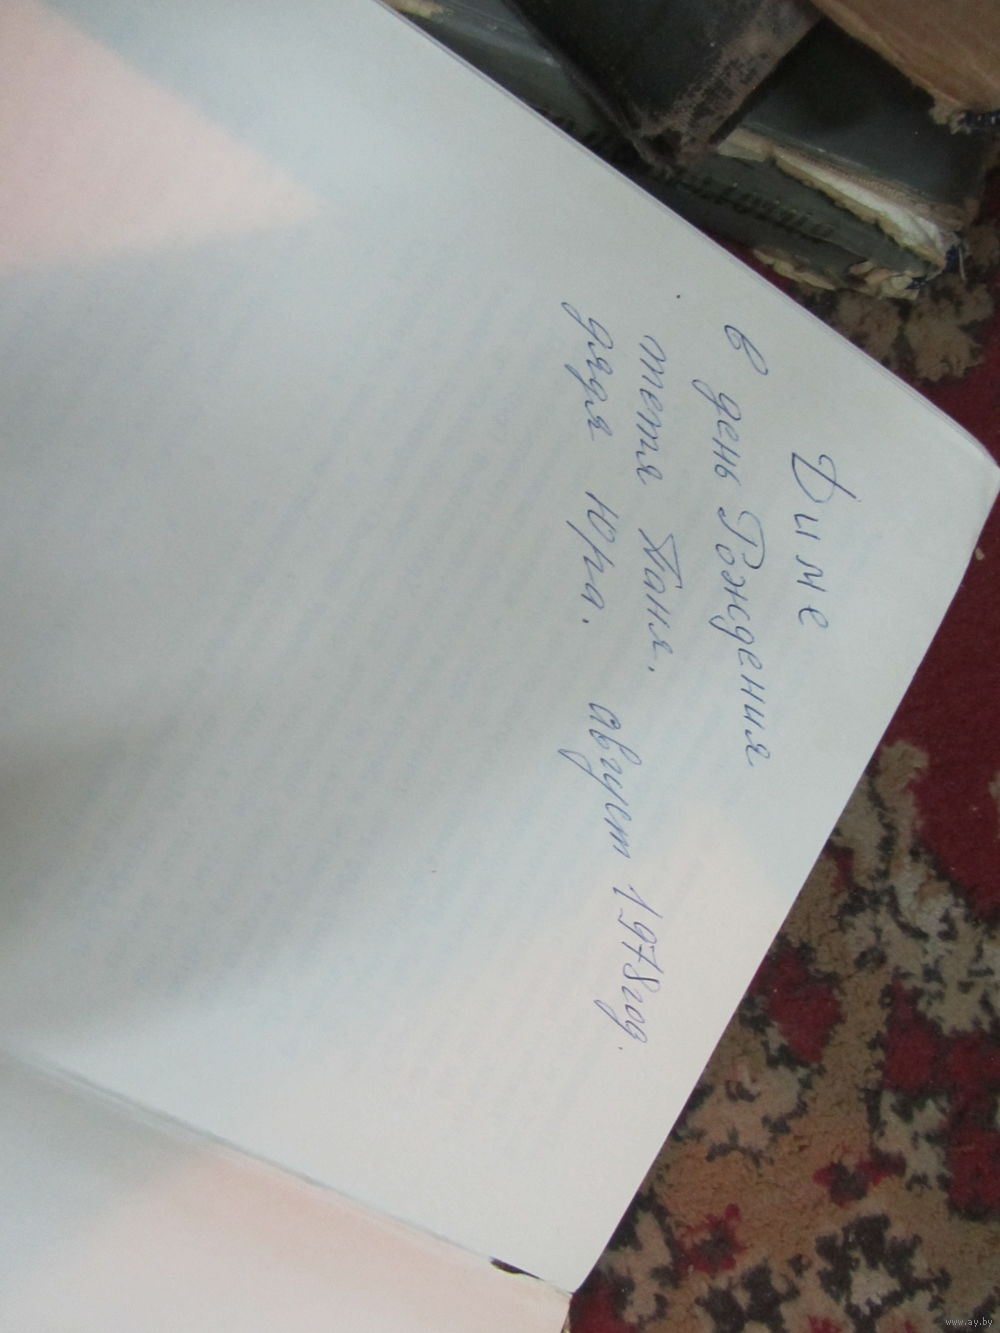 Диме
в день Рождения
тетя Таня.
дядя Юра. август 1978 год.
www.ay.by